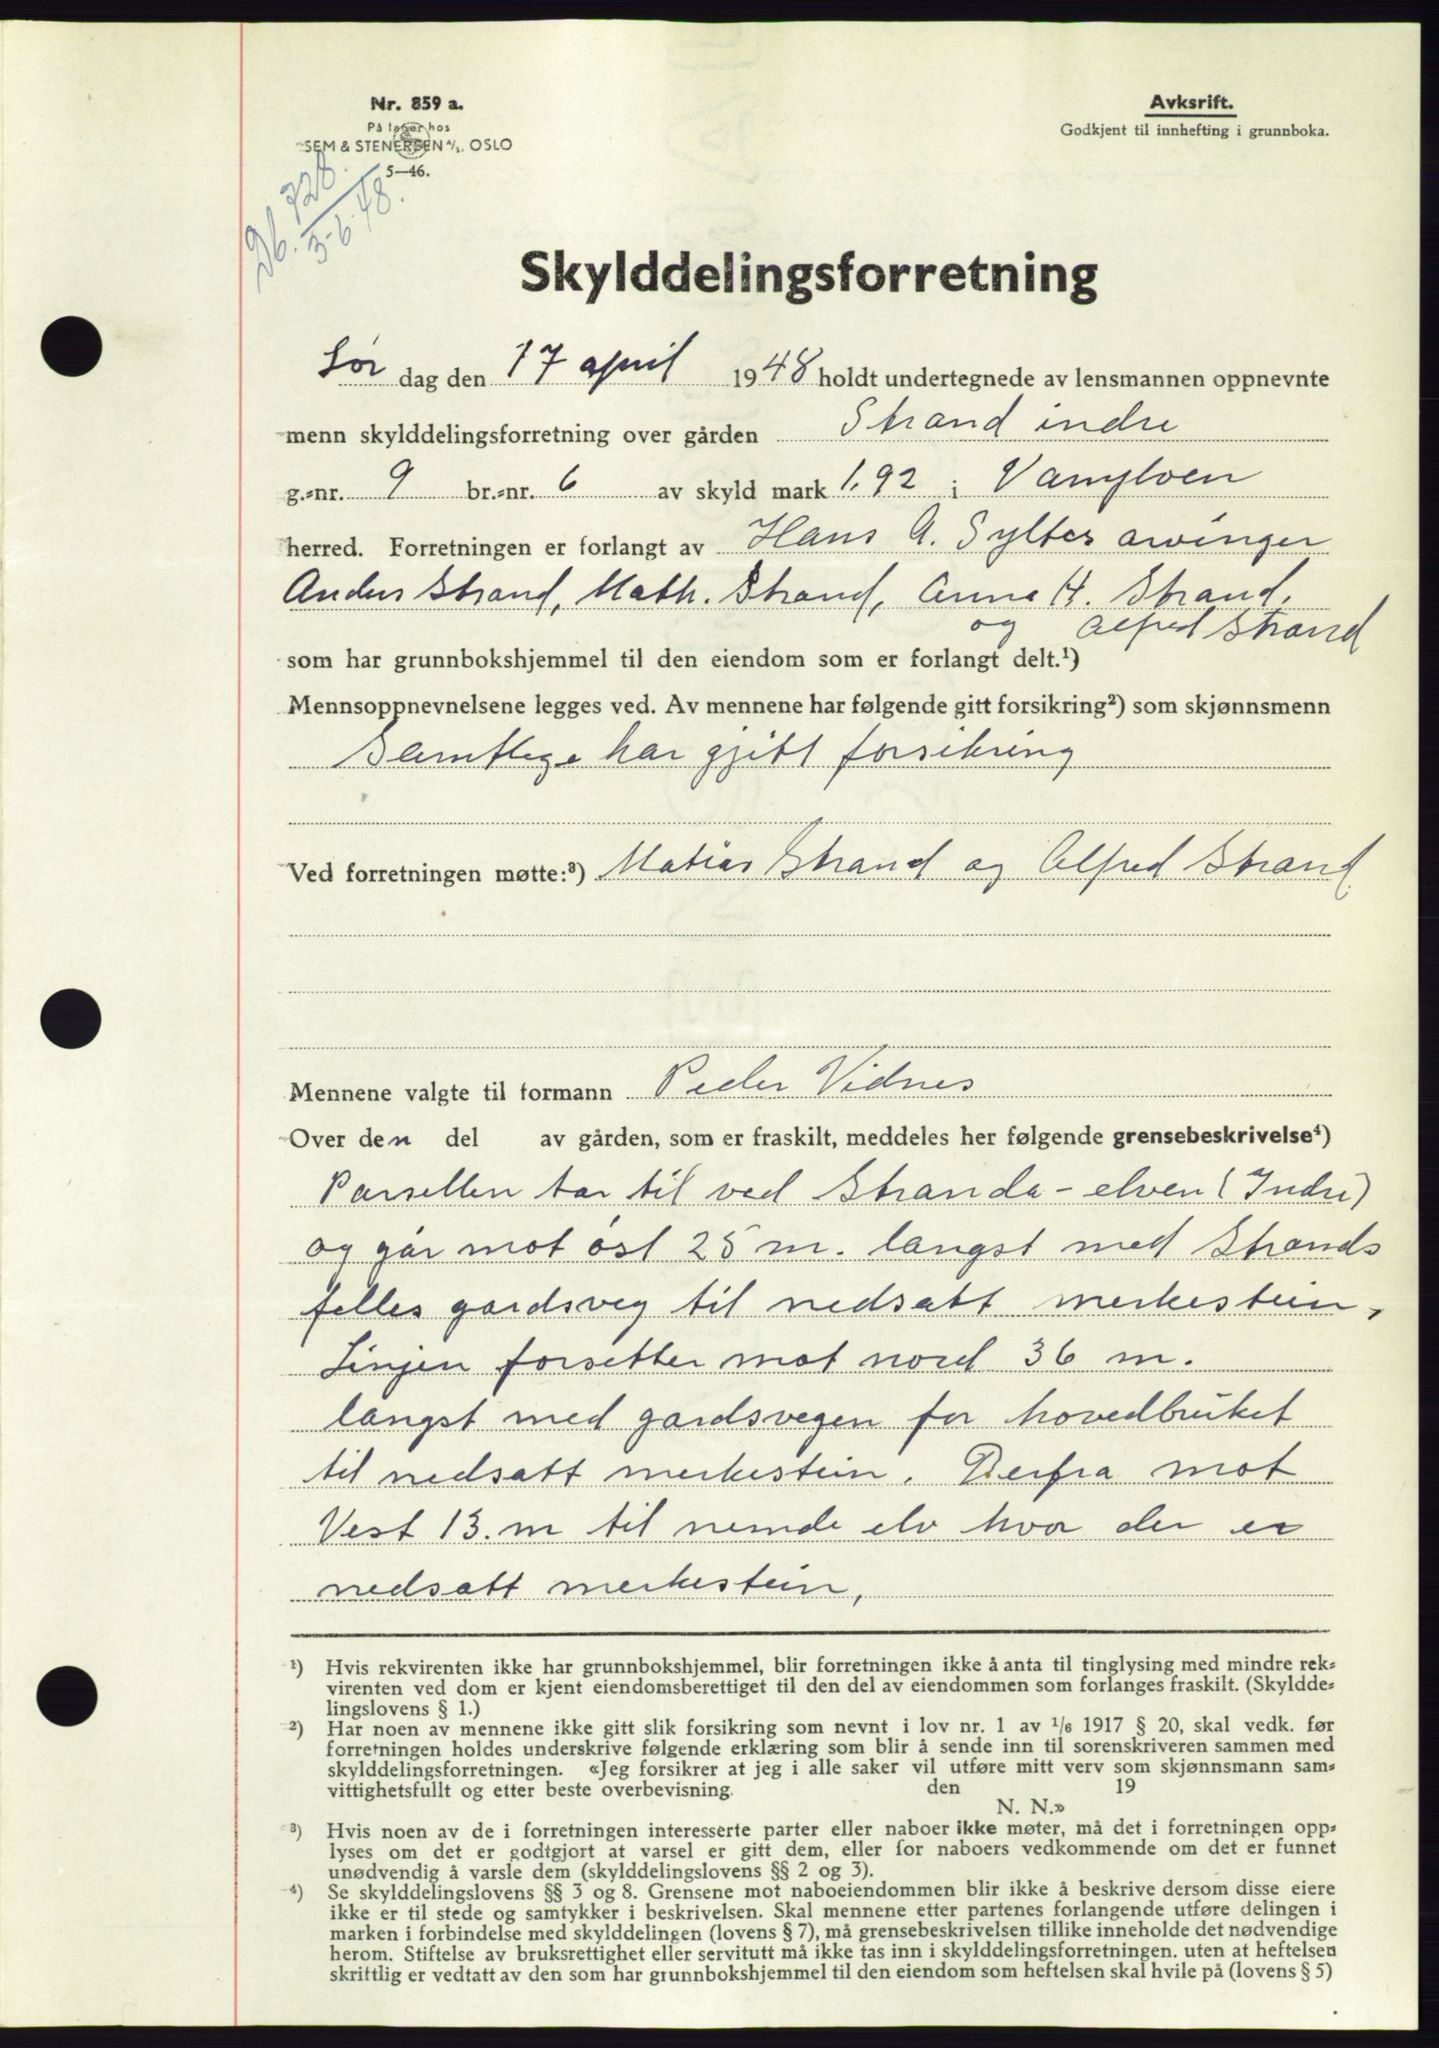 Nr. 859 a.
På lager hos
SEM & STENERSEN A/S, OSLO
5—46.
Avksrift.
Godkjent til innhefting i grunnboka.
Db. 728.
3-6-48.
Skylddelingsforretning
Lør dag den 17 april 1948 holdt undertegnede av lensmannen oppnevnte
menn skylddelingsforretning over gården Strand indre
g.-nr. 9 br.-nr. 6 av skyld mark 1,92 i Vanylven
herred. Forretningen er forlangt av Hans A. Syltes arvinger
Anders Strand, Math. Strand, Anna H. Strand,
og Alfred Strand
som har grunnbokshjemmel til den eiendom som er forlangt delt.¹)
Mennsoppnevnelsene legges ved. Av mennene har følgende gitt forsikring²) som skjønnsmenn
Samtlege har gjitt forsikring
Ved forretningen møtte:³) Matias Strand og Alfred Strand
Mennene valgte til formann Peder Vidnes
Over den del av gården, som er fraskilt, meddeles her følgende grensebeskrivelse⁴)
Parsellen tar til ved Stranda-elven (Indre)
og går mot øst 25 m. langst med Strands
felles gardsveg til nedsatt merkestein,
Linjen forsetter mot nord 36 m.
langst med gardsvegen for hovedbruket
til nedsatt merkestein. Derfra mot
Vest 13. m til nemde elv hvor der er
nedsatt merkestein,
¹) Hvis rekvirenten ikke har grunnbokshjemmel, blir forretningen ikke å anta til tinglysing med mindre rek-
virenten ved dom er kjent eiendomsberettiget til den del av eiendommen som forlanges fraskilt. (Skyldde-
lingslovens § 1.)
²) Har noen av mennene ikke gitt slik forsikring som nevnt i lov nr. 1 av ¹/6 1917 § 20, skal vedk. før
forretningen holdes underskrive følgende erklæring som blir å sende inn til sorenskriveren sammen med
skylddelingsforretningen. «Jeg forsikrer at jeg i alle saker vil utføre mitt verv som skjønnsmann sam-
vittighetsfullt og etter beste overbevisning. den 19
N. N.»
³) Hvis noen av de i forretningen interesserte parter eller naboer ikke møter, må det i forretningen opp-
lyses om det er godtgjort at varsel er gitt dem, eller for naboers vedkommende om det er funnet
unødvendig å varsle dem (skylddelingslovens §§ 2 og 3).
⁴) Se skylddelingslovens §§ 3 og 8. Grensene mot naboeiendommen blir ikke å beskrive dersom disse eiere
ikke er til stede og samtykker i beskrivelsen. Skal mennene etter partenes forlangende utføre delingen i
marken i forbindelse med skylddelingen (lovens § 7), må grensebeskrivelsen tillike inneholde det nødvendige
herom. Stiftelse av bruksrettighet eller servitutt må ikke tas inn i skylddelingsforretningen. uten at heftelsen
skrittlig er vedtatt av den som har grunnbokshjemmel til den eiendom som heftelsen skal hvile på (lovens § 5)